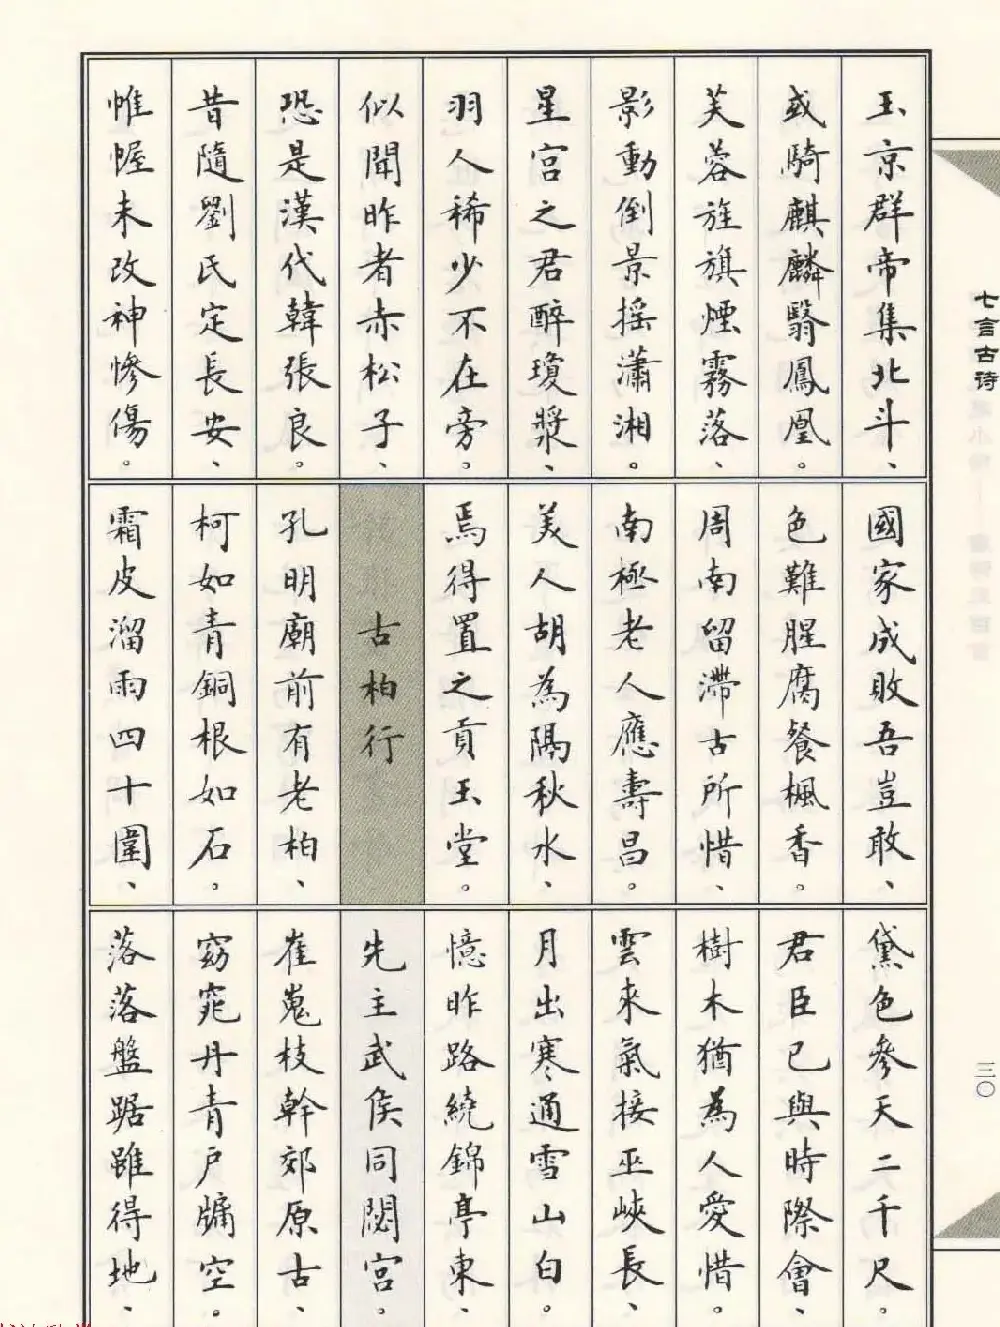 玉京群帝集北斗、
或騎麒麟翳鳳凰。
芙蓉旌旗煙霧落、
影動倒景搖瀟湘。
星宮之君醉瓊漿、
羽人稀少不在旁。
似聞昨者赤松子、
恐是漢代韓張良。
昔隨劉氏定長安、
帷幄未改神慘傷。
國家成敗吾豈敢、
色難腥腐餐楓香。
周南留滯古所惜、
南極老人應壽昌。
美人胡為隔秋水、
焉得置之貢玉堂。
古柏行
孔明廟前有老柏、
柯如青銅根如石。
霜皮溜雨四十圍、
黛色參天二千尺。
君臣已與時際會、
樹木猶為人愛惜。
雲來氣接巫峽長、
月出寒通雪山白。
憶昨路繞錦亭東、
先主武侯同閟宮。
崔嵬枝幹郊原古、
窈窕丹青戶牖空。
落落盤踞雖得地、
七言古诗
三〇